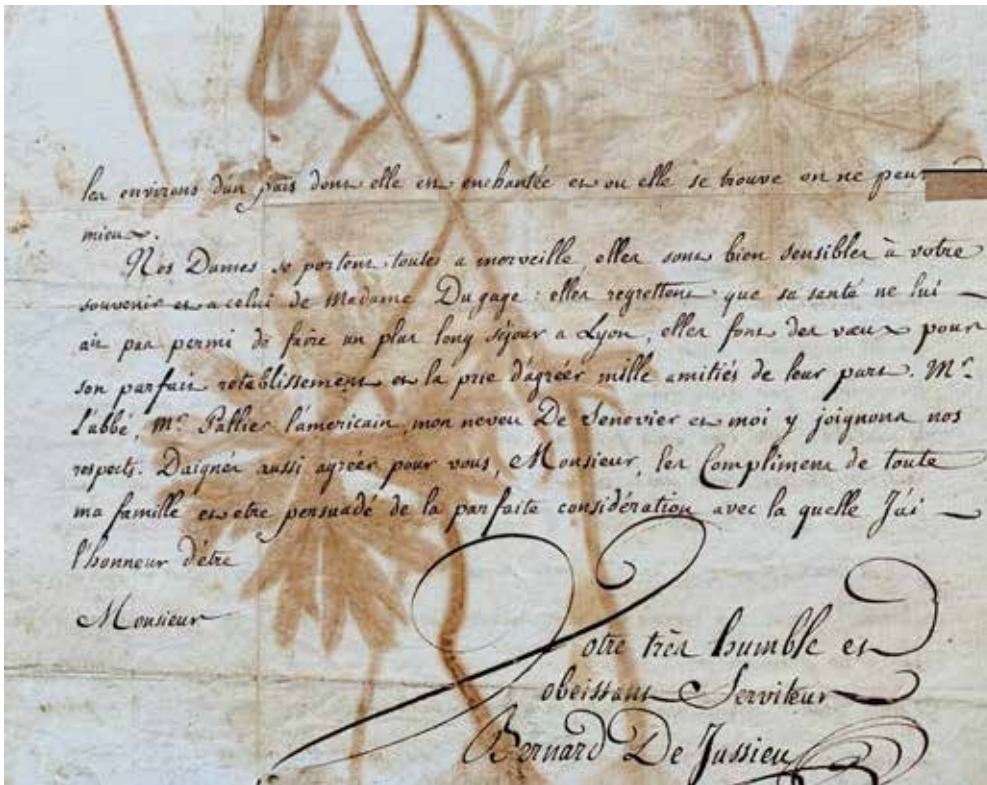 les environs d'un païs dont elle est enchantée et ou elle se trouve on ne peut
mieux.
Nos Dames se portent toutes a merveille elles sont bien sensibles à votre
souvenir et a celui de Madame Dugage : elles regrettent que sa santé ne lui
ait pas permi de faire un plus long séjour a Lyon, elles font des vœux pour
son parfait rétablissement et la prie d'agréer mille amitiés de leur part. Mr.
L'abbé, Mr. Pallier l'americain, mon neveu De Senevier et moi y joignons nos
respects. Daignés aussi agréer pour vous, Monsieur, les Complimens de toute
ma famille et etre persuadé de la parfaite considération avec la quelle J'ai
l'honneur d'être
Monsieur
Votre très humble et
obeissant Serviteur
Bernard De Jussieu